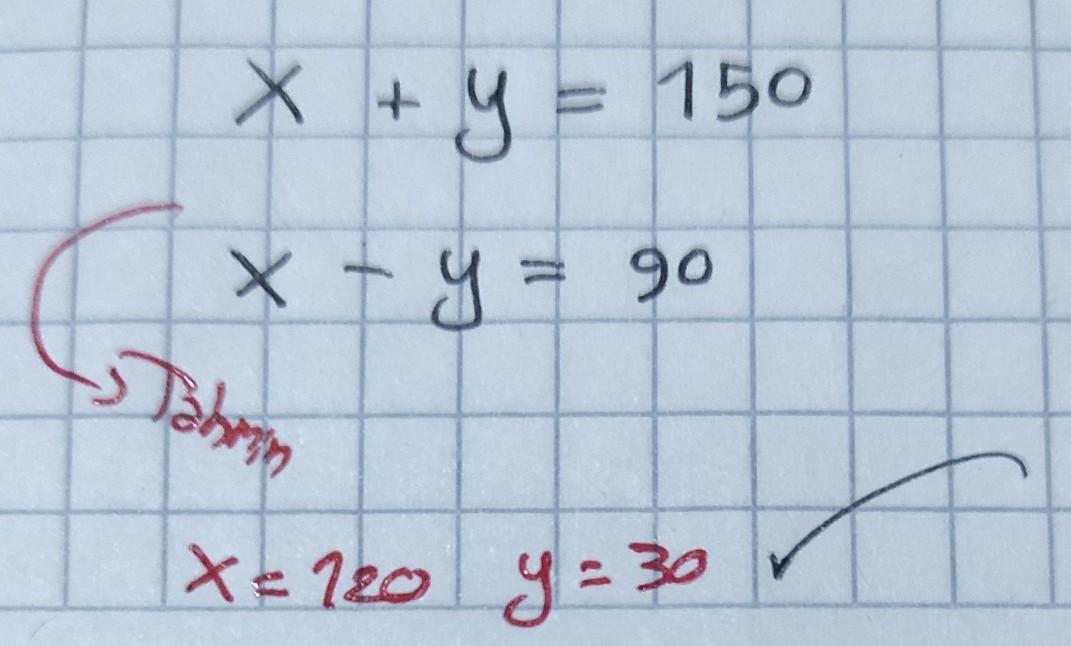 x + y = 150
x - y = 90
Tahmin
x = 120 y = 30